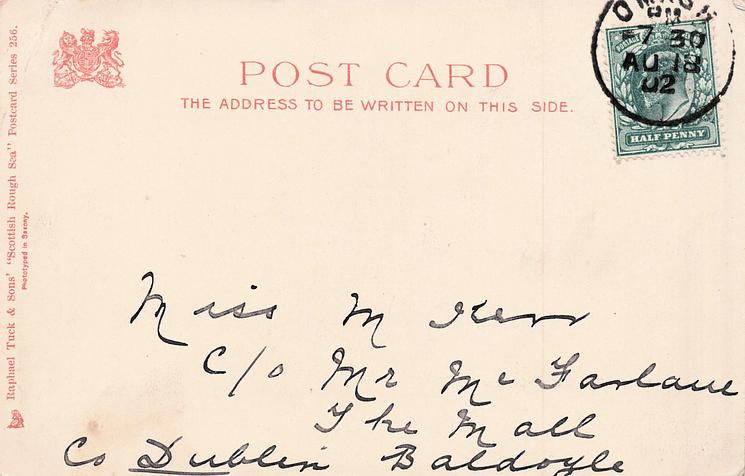 POST CARD
THE ADDRESS TO BE WRITTEN ON THIS SIDE.
OMAGH
PM
7 30
AU 18
02
POSTAGE
HALF PENNY
Raphael Tuck & Sons' "Scottish Rough Sea" Postcard Series 256.
Phototyped in Saxony.
Miss M Kerr
C/o Mr Mc Farlane
The Mall
Co Dublin Baldoyle